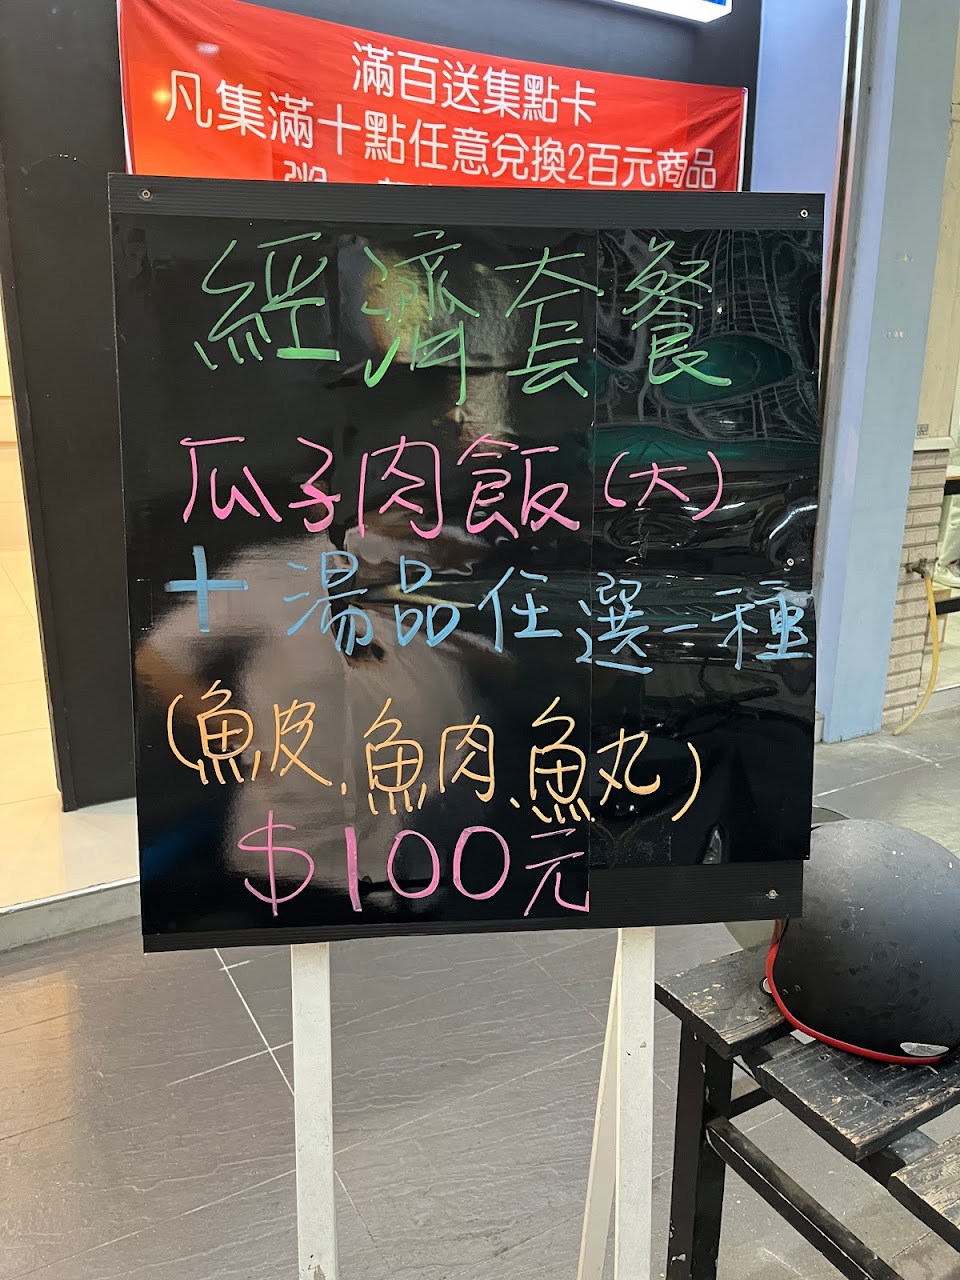 滿百送集點卡
凡集滿十點任意兌換2百元商品
經濟套餐
瓜子肉飯(大)
+湯品任選一種
(魚皮、魚肉、魚丸)
$100元